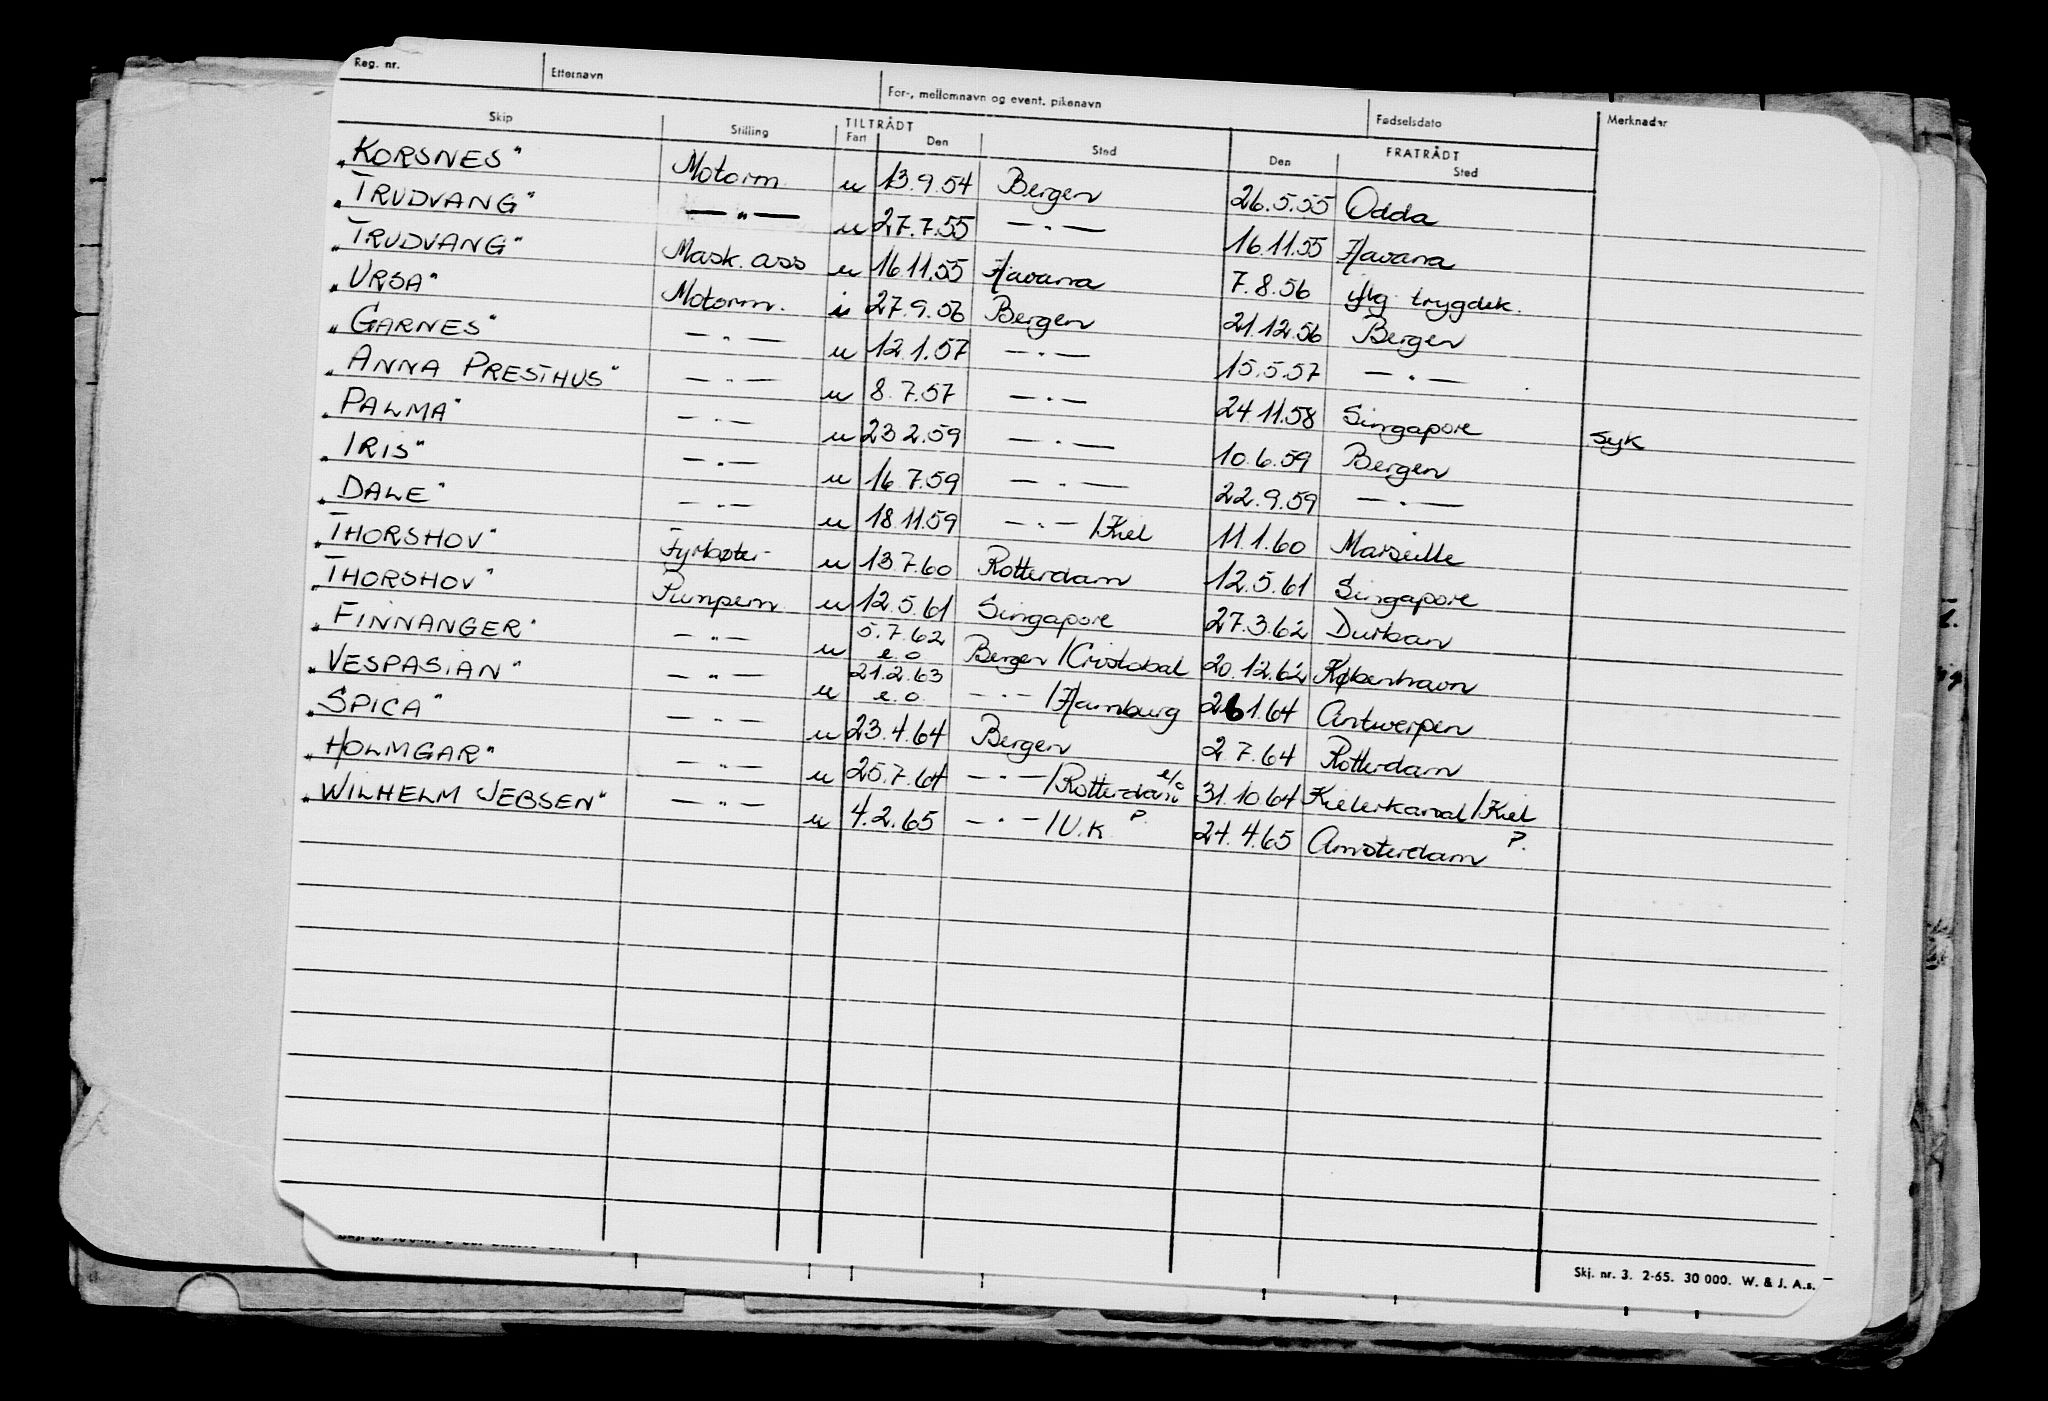 Reg. nr. Etternavn For-, mellomnavn og event. pikenavn Fødselsdato Merknader
Skip Stilling TILTRÅDT FRATRÅDT
Fart Den Sted Den Sted
„KORSNES“ Motorm. u 13.9.54 Bergen 26.5.55 Odda
„TRUDVANG“ — " — u 27.7.55 — " — 16.11.55 Havana
„TRUDVANG“ Mask. ass u 16.11.55 Havana 7.8.56 iflg. trygdek.
„URSA“ Motorm. i 27.9.56 Bergen 21.12.56 Bergen
„GARNES“ — " — u 12.1.57 — " — 15.5.57 — " —
„ANNA PRESTHUS“ — " — u 8.7.57 — " — 24.11.58 Singapore syk
„PALMA“ — " — u 23.2.59 — " — 10.6.59 Bergen
„IRIS“ — " — u 16.7.59 — " — 22.9.59 — " —
„DALE“ — " — u 18.11.59 — " — /Kiel 11.1.60 Marseille
„THORSHOV“ Fyrbøter u 13.7.60 Rotterdam 12.5.61 Singapore
„THORSHOV“ Pumpem u 12.5.61 Singapore 27.3.62 Durban
„FINNANGER“ — " — u 5.7.62 e.o Bergen/Cristobal 20.12.62 København
„VESPASIAN“ — " — u 21.2.63 e.o. — " — /Hamburg 26.1.64 Antwerpen
„SPICA“ — " — u 23.4.64 Bergen 2.7.64 Rotterdam
„HOLMGAR“ — " — u 25.7.64 — " — /Rotterdam e/o 31.10.64 Kielerkanal/Kiel
„WILHELM JEBSEN“ — " — u 4.2.65 — " — /U.K. P. 24.4.65 Amsterdam P.
Skj. nr. 3. 2-65. 30 000. W. & J. A.s.